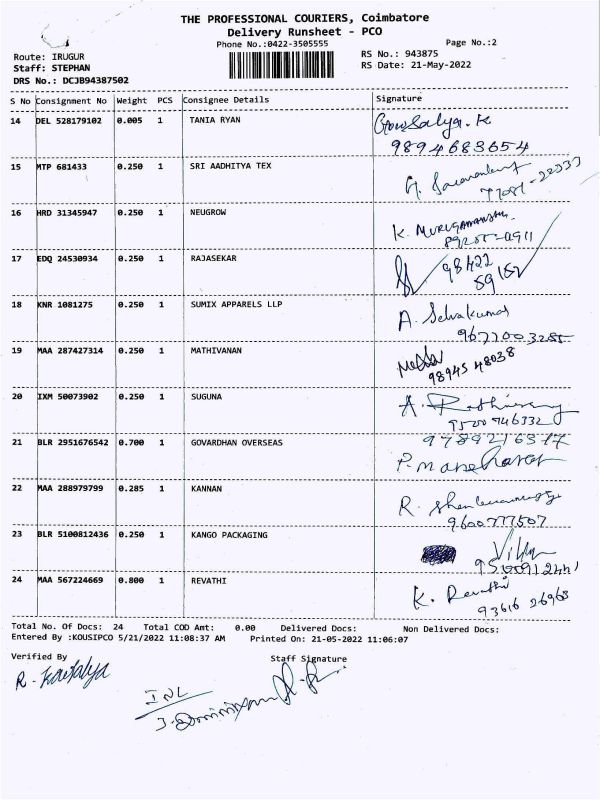 THE PROFESSIONAL COURIERS, Coimbatore
Delivery Runsheet - PCO
Phone No.:0422-3505555
Page No.:2
Route: IRUGUR
RS No.: 943875
Staff: STEPHAN
RS Date: 21-May-2022
DRS No.: DCJB94387502
S No Consignment No Weight PCS Consignee Details Signature
14 DEL 528179102 0.005 1 TANIA RYAN Gowsalya. K
9894683654
15 MTP 681433 0.250 1 SRI AADHITYA TEX
16 HRD 31345947 0.250 1 NEUGROW K.
17 EDQ 24530934 0.250 1 RAJASEKAR 98422
59162
18 KNR 1081275 0.250 1 SUMIX APPARELS LLP A. Selvakumar
9677003285
19 MAA 287427314 0.250 1 MATHIVANAN
98945 48038
20 IXM 50073902 0.250 1 SUGUNA A.
9500746332
21 BLR 2951676542 0.700 1 GOVARDHAN OVERSEAS 9789216377
P. Manoharan
22 MAA 288979799 0.285 1 KANNAN R.
9600777507
23 BLR 5100812436 0.250 1 KANGO PACKAGING
24 MAA 567224669 0.800 1 REVATHI K. Revathi
93616 26968
Total No. Of Docs: 24 Total COD Amt: 0.00 Delivered Docs: Non Delivered Docs:
Entered By :KOUSIPCO 5/21/2022 11:08:37 AM Printed On: 21-05-2022 11:06:07
Verified By Staff Signature
R. Kowsalya
INL